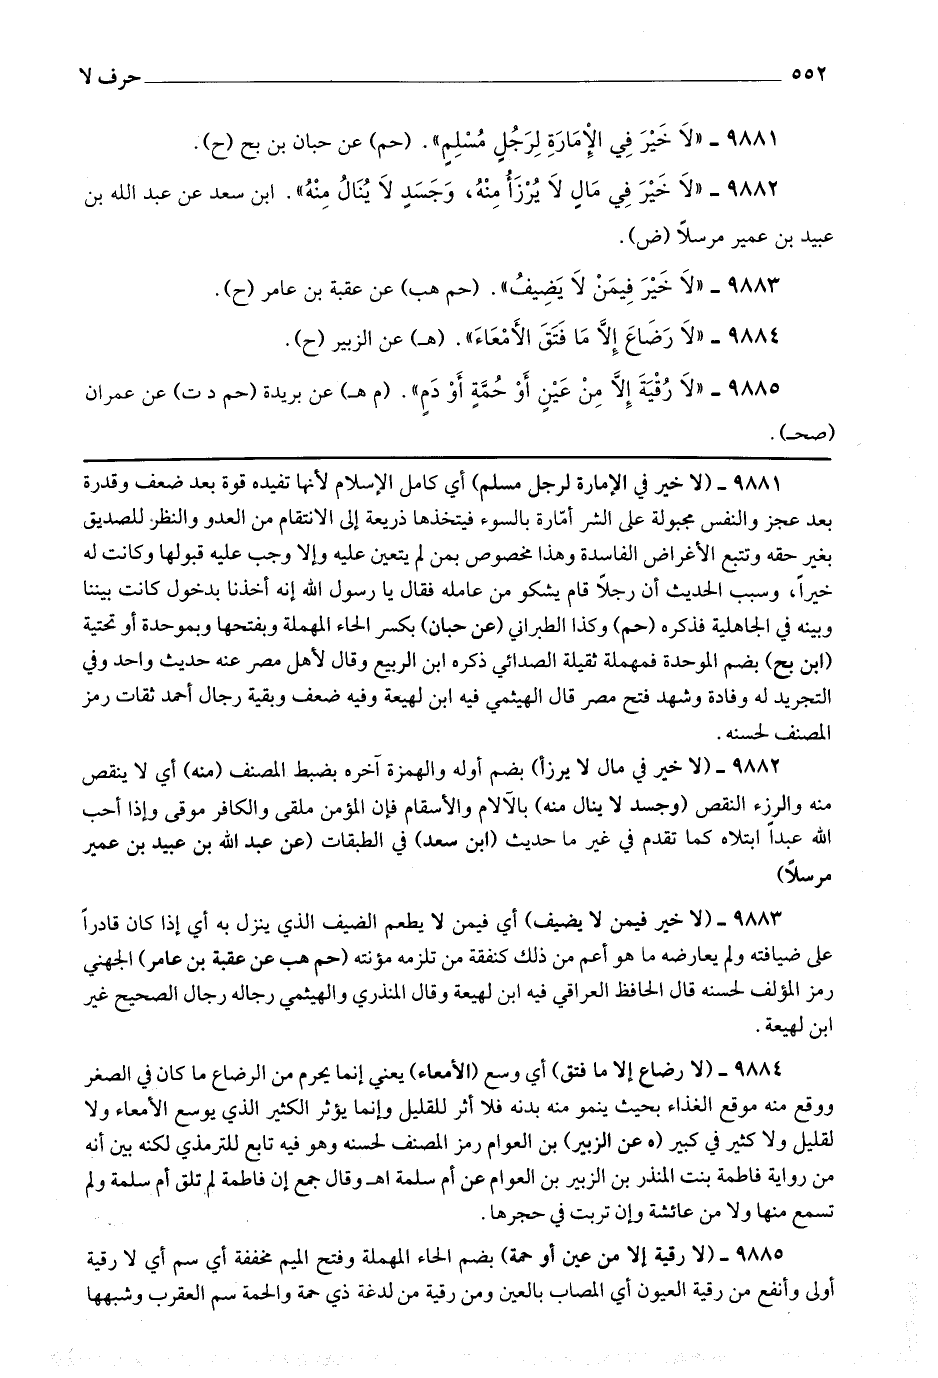 ٥٥٢ حرف لا
٩٨٨١ ـ «لَا خَيْرَ فِي الْإِمَارَةِ لِرَجُلٍ مُسْلِمٍ». (حم) عن حبان بن بح (ح).
٩٨٨٢ ـ «لَا خَيْرَ فِي مَالٍ لَا يُرْزَأُ مِنْهُ، وَجَسَدٍ لَا يُنَالُ مِنْهُ». ابن سعد عن عبد الله بن
عبيد بن عمير مرسلاً (ض).
٩٨٨٣ ـ «لَا خَيْرَ فِيمَنْ لَا يَضِيفُ». (حم هب) عن عقبة بن عامر (ح).
٩٨٨٤ ـ «لَا رَضَاعَ إِلَّا مَا فَتَقَ الْأَمْعَاءَ». (هـ) عن الزبير (ح).
٩٨٨٥ ـ «لَا رُقْيَةَ إِلَّا مِنْ عَيْنٍ أَوْ حُمَّةٍ أَوْ دَمٍ». (م هـ) عن بريدة (حم د ت) عن عمران
(صحـ).
٩٨٨١ ـ (لا خير في الإمارة لرجل مسلم) أي كامل الإسلام لأنها تفيده قوة بعد ضعف وقدرة
بعد عجز والنفس مجبولة على الشر أمّارة بالسوء فيتخذها ذريعة إلى الانتقام من العدو والنظر للصديق
بغير حقه وتتبع الأغراض الفاسدة وهذا مخصوص بمن لم يتعين عليه وإلا وجب عليه قبولها وكانت له
خيراً، وسبب الحديث أن رجلاً قام يشكو من عامله فقال يا رسول الله إنه أخذنا بدخول كانت بيننا
وبينه في الجاهلية فذكره (حم) وكذا الطبراني (عن حبان) بكسر الحاء المهملة وبفتحها وبموحدة أو تحتية
(ابن بح) بضم الموحدة فمهملة ثقيلة الصدائي ذكره ابن الربيع وقال لأهل مصر عنه حديث واحد وفي
التجريد له وفادة وشهد فتح مصر قال الهيثمي فيه ابن لهيعة وفيه ضعف وبقية رجال أحمد ثقات رمز
المصنف لحسنه.
٩٨٨٢ ـ (لا خير في مال لا يرزأ) بضم أوله والهمزة آخره بضبط المصنف (منه) أي لا ينقص
منه والرزء النقص (وجسد لا ينال منه) بالآلام والأسقام فإن المؤمن ملقى والكافر موقى وإذا أحب
الله عبداً ابتلاه كما تقدم في غير ما حديث (ابن سعد) في الطبقات (عن عبد الله بن عبيد بن عمير
مرسلاً)
٩٨٨٣ ـ (لا خير فيمن لا يضيف) أي فيمن لا يطعم الضيف الذي ينزل به أي إذا كان قادراً
على ضيافته ولم يعارضه ما هو أعم من ذلك كنفقة من تلزمه مؤنته (حم هب عن عقبة بن عامر) الجهني
رمز المؤلف لحسنه قال الحافظ العراقي فيه ابن لهيعة وقال المنذري والهيثمي رجاله رجال الصحيح غير
ابن لهيعة.
٩٨٨٤ ـ (لا رضاع إلا ما فتق) أي وسع (الأمعاء) يعني إنما يحرم من الرضاع ما كان في الصغر
ووقع منه موقع الغذاء بحيث ينمو منه بدنه فلا أثر للقليل وإنما يؤثر الكثير الذي يوسع الأمعاء ولا
لقليل ولا كثير في كبير (ه عن الزبير) بن العوام رمز المصنف لحسنه وهو فيه تابع للترمذي لكنه بين أنه
من رواية فاطمة بنت المنذر بن الزبير بن العوام عن أم سلمة اهـ وقال جمع إن فاطمة لم تلق أم سلمة ولم
تسمع منها ولا من عائشة وإن تربت في حجرها.
٩٨٨٥ ـ (لا رقية إلا من عين أو حمة) بضم الحاء المهملة وفتح الميم مخففة أي سم أي لا رقية
أولى وأنفع من رقية العيون أي المصاب بالعين ومن رقية من لدغة ذي حمة والحمة سم العقرب وشبهها